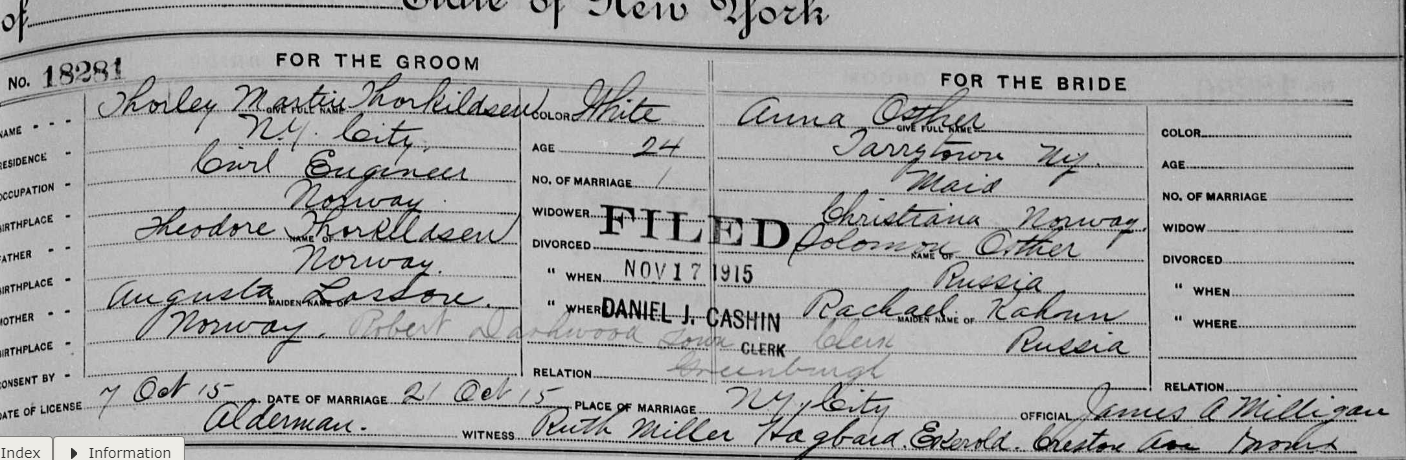 of State of New York
No. 18281 FOR THE GROOM FOR THE BRIDE
NAME - - - Thorley Martin Thorkildsen GIVE FULL NAME COLOR White Anna Osther GIVE FULL NAME COLOR
RESIDENCE - N.Y. City. AGE 24 Tarrytown Ny. AGE
OCCUPATION - Civil Engineer NO. OF MARRIAGE 1 Maid NO. OF MARRIAGE
BIRTHPLACE - Norway. WIDOWER Christiana Norway. WIDOW
FATHER - Theodore Thorkildsen NAME OF DIVORCED Solomon Osther NAME OF DIVORCED
BIRTHPLACE - Norway. " WHEN Russia " WHEN
MOTHER - Augusta MAIDEN NAME OF " WHERE Rachael MAIDEN NAME OF " WHERE
BIRTHPLACE - Norway. Robert Dashwood Town Clerk Russia
CONSENT BY - RELATION Greenburgh RELATION
FILED
NOV 17 1915
DANIEL J. CASHIN
CLERK
DATE OF LICENSE 7 Oct 15 DATE OF MARRIAGE 21 Oct 15 PLACE OF MARRIAGE N.Y. City OFFICIAL James A Milligan
Alderman. WITNESS Ruth Miller Hagbard Ekerold. Creston Ave Bronx
Index Information